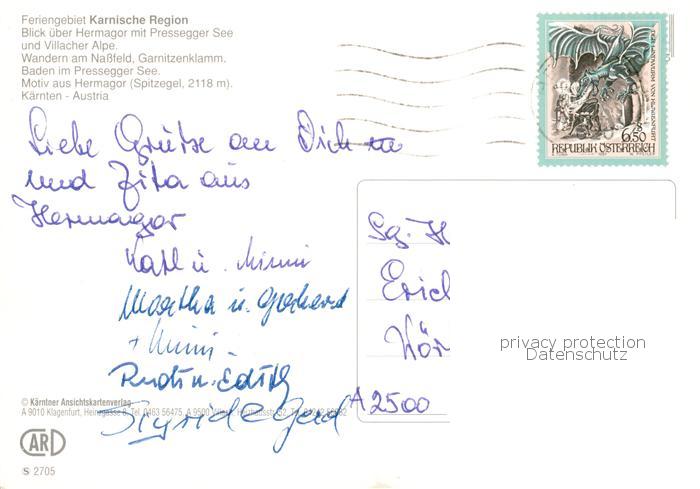 Feriengebiet Karnische Region
Blick über Hermagor mit Pressegger See
und Villacher Alpe.
Wandern am Naßfeld, Garnitzenklamm.
Baden im Pressegger See.
Motiv aus Hermagor (Spitzegel, 2118 m).
Kärnten - Austria
DER LINDWURM VON KLAGENFURT
6.50
REPUBLIK ÖSTERREICH
Liebe Grüße an Dich
und Zita aus
Hermagor
Karl u. Mimi
Martha u. Gerhard
+ Mimi
Rudi u. Edith
Sigrid Gerd
Sg. H
Erich
Kör
A 2500
privacy protection
Datenschutz
© Kärntner Ansichtskartenverlag
A 9010 Klagenfurt,
Tel. 0463 56475, A 9500
CARD
S 2705